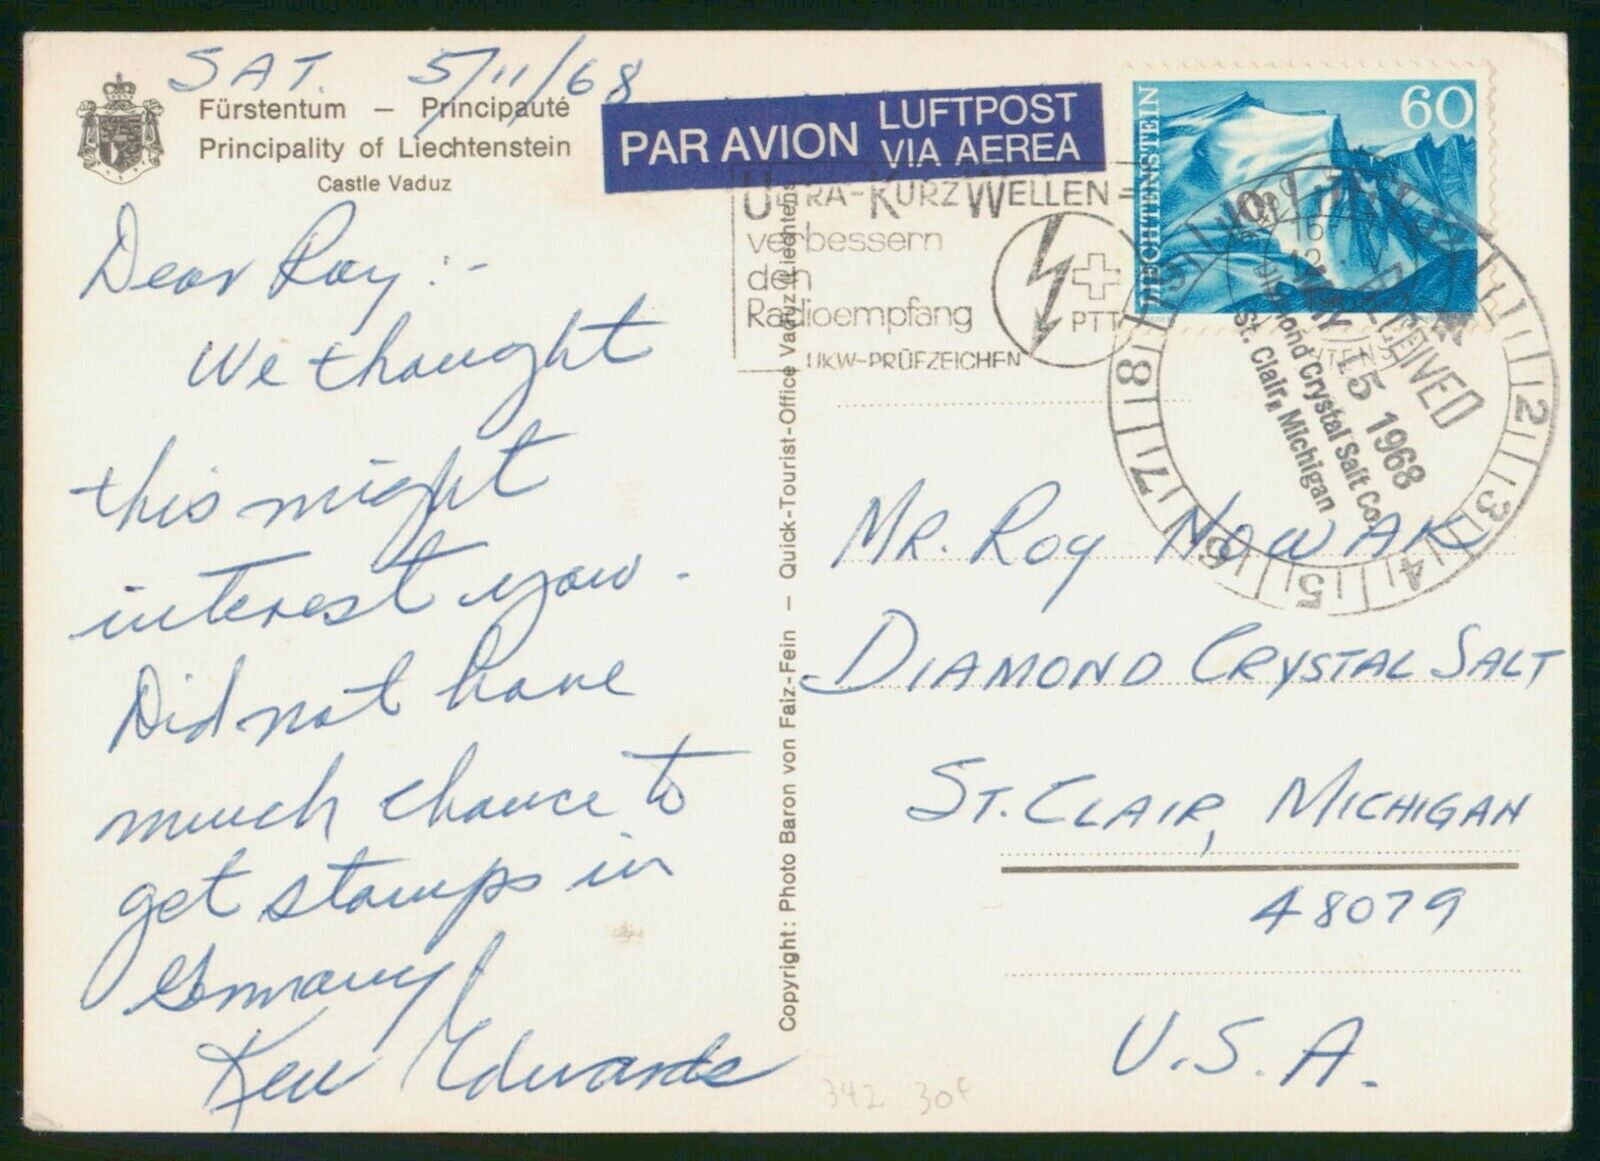 SAT. 5/11/68
Fürstentum – Principauté
Principality of Liechtenstein
Castle Vaduz
Dear Roy :-
We thought
this might
interest you.
Did not have
much chance to
get stamps in
Germany
Ken Edwards
Copyright: Photo Baron von Falz-Fein – Quick-Tourist-Office Vaduz Liechtenstein
PAR AVION
LUFTPOST
VIA AEREA
ULTRA-KURZWELLEN=
verbessern
den
Radioempfang
UKW-PRÜFZEICHEN
PTT
LIECHTENSTEIN
60
RECEIVED
MAY 15 1968
Diamond Crystal Salt Co.
St. Clair, Michigan
2 3 4 5 6 7 8
MR. ROY NOWAK
DIAMOND CRYSTAL SALT
ST. CLAIR, MICHIGAN
48079
U.S.A.
342 30f